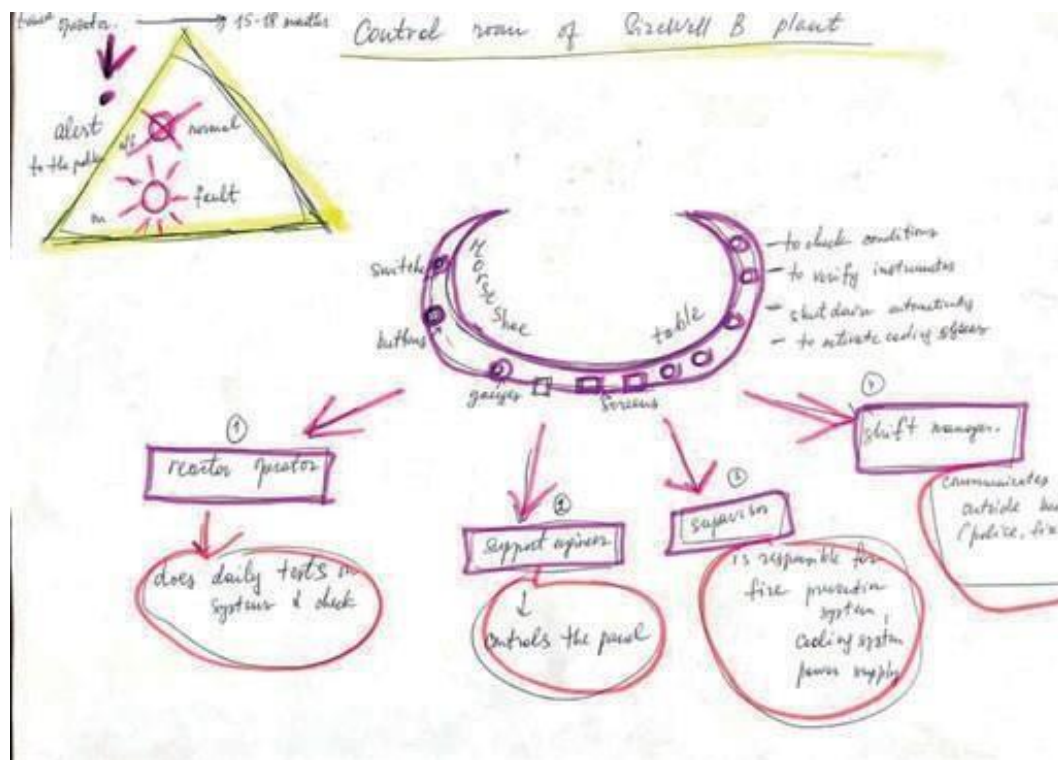 operator 15-18 months
Control room of Sizewell B plant
alert
to the public
normal
fault
m
switch
buttons
gauges
screens
Horse Shoe
table
- to check conditions
- to verify instruments
- shut down automatically
- to activate cooling
1
reactor operator
does daily tests on
systems & check
2
support engineer
controls the panel
3
supervisor
is responsible for
fire prevention
system,
cooling system
power supply
4
shift manager.
communicates
outside
(police, fire